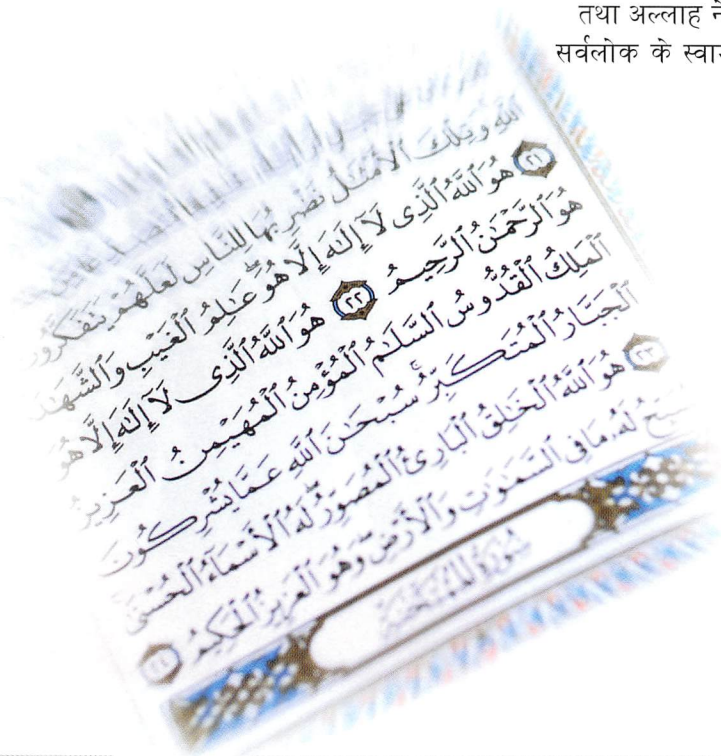 तथा अल्लाह ने
सर्वलोक के
ٱللَّهِ وَتِلْكَ ٱلْأَمْثَٰلُ نَضْرِبُهَا لِلنَّاسِ لَعَلَّهُمْ يَتَفَكَّرُونَ
٢١ هُوَ ٱللَّهُ ٱلَّذِى لَآ إِلَٰهَ إِلَّا هُوَ ۖ عَٰلِمُ ٱلْغَيْبِ وَٱلشَّهَٰدَ
هُوَ ٱلرَّحْمَٰنُ ٱلرَّحِيمُ ٢٢ هُوَ ٱللَّهُ ٱلَّذِى لَآ إِلَٰهَ إِلَّا هُوَ
ٱلْمَلِكُ ٱلْقُدُّوسُ ٱلسَّلَٰمُ ٱلْمُؤْمِنُ ٱلْمُهَيْمِنُ ٱلْعَزِيزُ
ٱلْجَبَّارُ ٱلْمُتَكَبِّرُ ۚ سُبْحَٰنَ ٱللَّهِ عَمَّا يُشْرِكُونَ
٢٣ هُوَ ٱللَّهُ ٱلْخَٰلِقُ ٱلْبَارِئُ ٱلْمُصَوِّرُ ۖ لَهُ ٱلْأَسْمَآءُ ٱلْحُسْنَىٰ
يُسَبِّحُ لَهُۥ مَا فِى ٱلسَّمَٰوَٰتِ وَٱلْأَرْضِ ۖ وَهُوَ ٱلْعَزِيزُ ٱلْحَكِيمُ ٢٤
سُورَةُ المُمْتَحَنَةِ